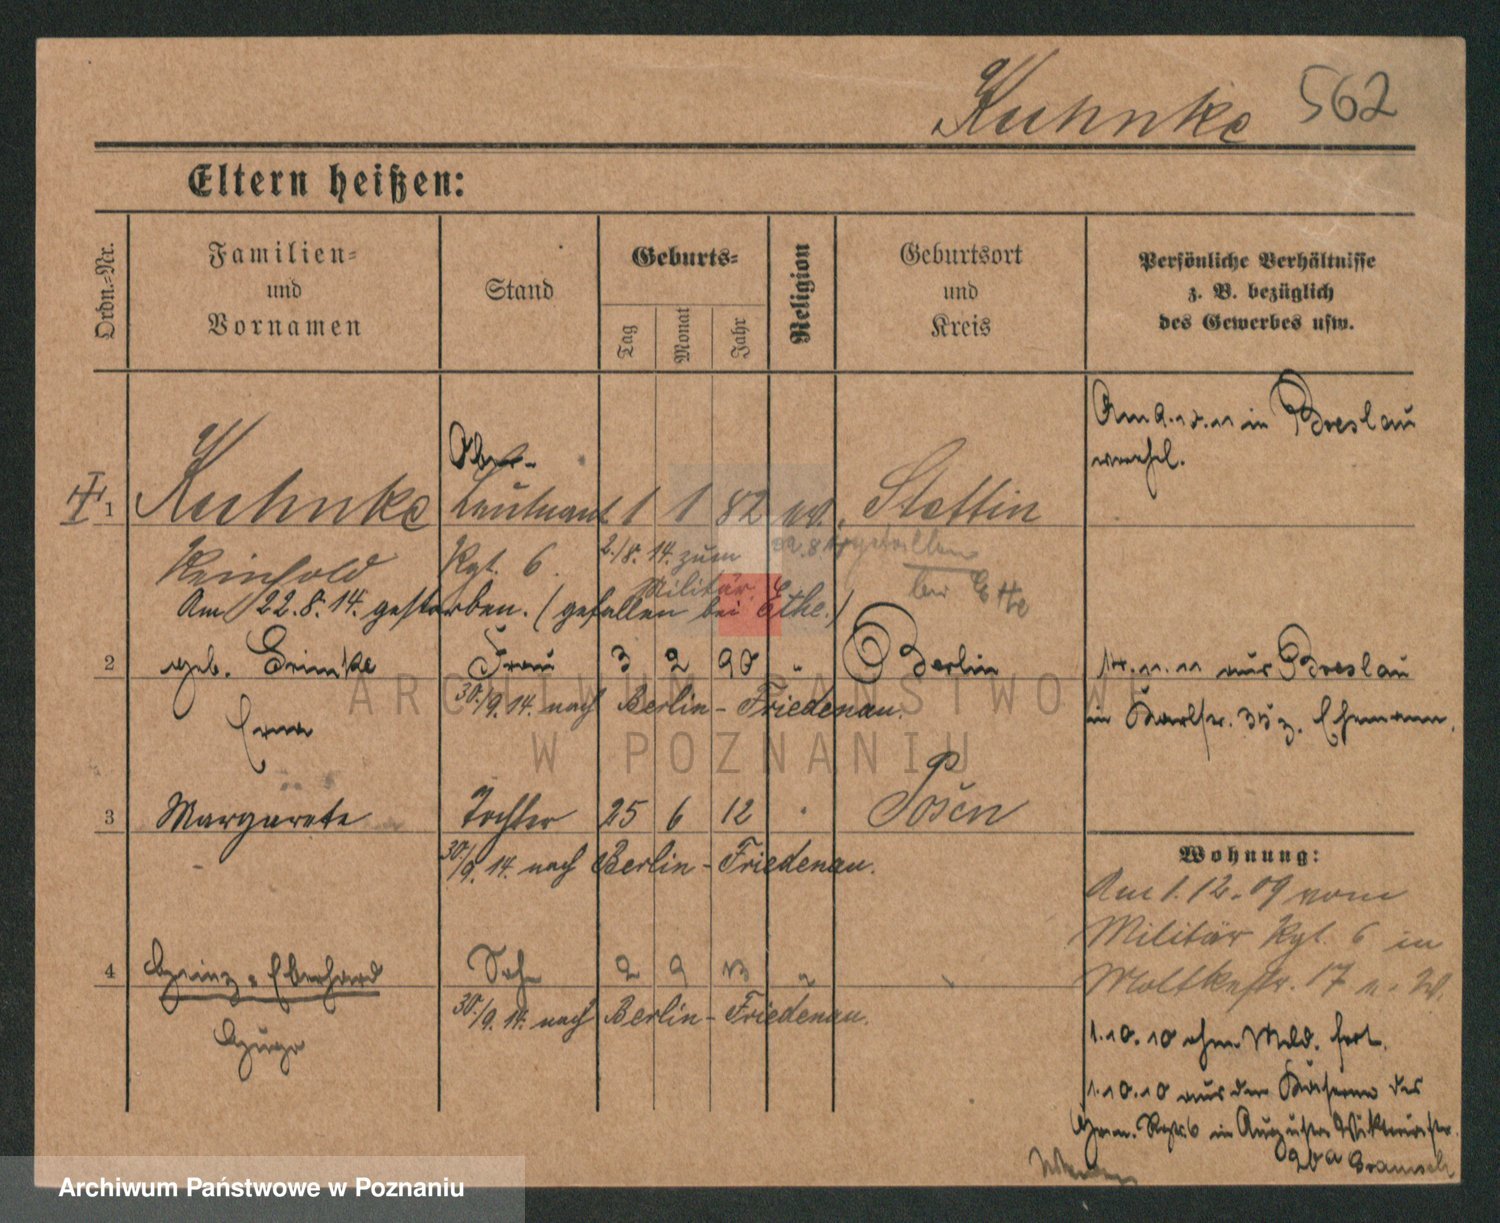 Kuhnke 562
Eltern heißen:
Ordn.-Nr.
Familien-
und
Vornamen
Stand
Geburts-
Tag
Monat
Jahr
Religion
Geburtsort
und
Kreis
Persönliche Verhältnisse
z. B. bezüglich
des Gewerbes usw.
Ober-
1 Kuhnke Leutnant 1 1 82 ev. Stettin
in Breslau
Reinhold Rgt. 6. 2./8. 14. zum Militär. 22. 8. 14 gefallen
bei Ethe
Am 22. 8. 14. gestorben. (gefallen bei Ethe.)
2 geb. Grimke Frau 3 2 90 " Berlin
aus Breslau
30./9. 14. nach Berlin - Friedenau.
Erna
in z. Ehemann.
3 Margarete Tochter 25 6 12 " Posen
30./9. 14. nach Berlin - Friedenau.
Wohnung:
Am 1. 12. 09 vom
Militär Rgt. 6 in
Moltkestr. 17 u. W.
4 Heinz-Eberhard Sohn 2 9 13 "
30./9. 14. nach Berlin - Friedenau.
Hugo
1.10.10 ohne Meld. fort.
1.10.10 aus der Kaserne des
Gren. Rgts 6 in Auguste Viktoriastr.
20a Gramsch
ARCHIWUM PAŃSTWOWE
W POZNANIU
Archiwum Państwowe w Poznaniu